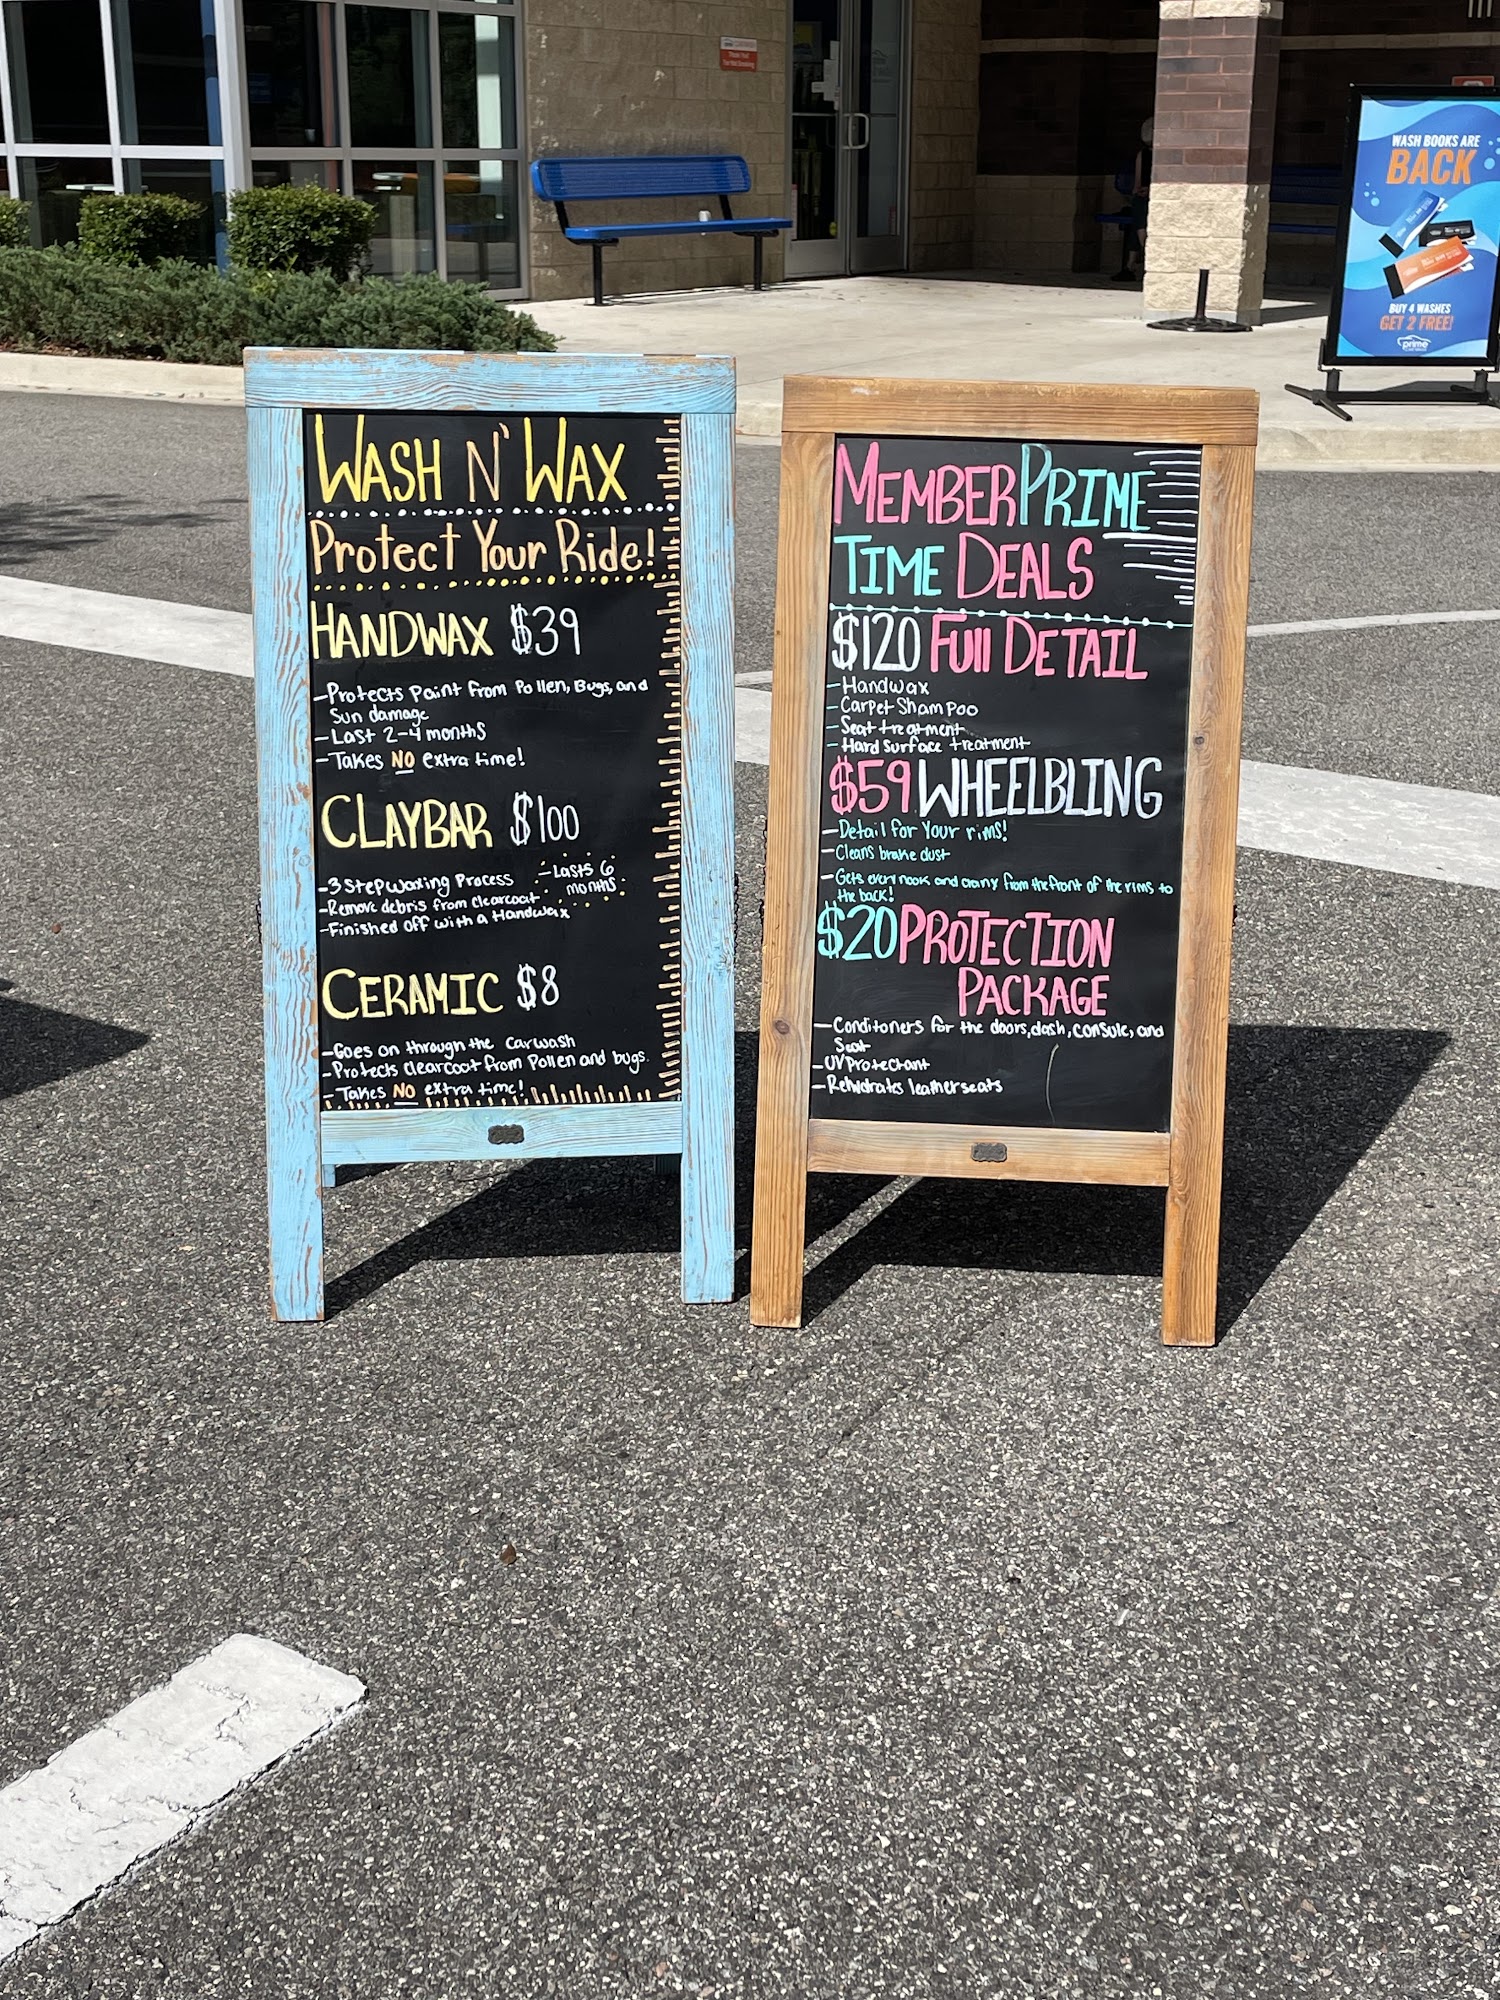 WASH N' WAX
Protect Your Ride!
HANDWAX $39
-Protects paint from Pollen, Bugs, and
Sun damage
-Last 2-4 months
-Takes NO extra time!
CLAYBAR $100
-3 Step waxing Process
-Lasts 6
months
-Remove debris from clearcoat
-Finished off with a Handwax
CERAMIC $8
-Goes on through the carwash
-Protects clearcoat from Pollen and bugs.
-Takes NO extra time!
MEMBER PRIME
TIME DEALS
$120 Full DETAIL
-Handwax
-Carpet Shampoo
-Seat treatment
-Hard Surface treatment
$59 WHEELBLING
-Detail for Your rims!
-Cleans brake dust
-Gets every nook and cranny from the front of the rims to
the back!
$20 PROTECTION
PACKAGE
-Conditoners for the doors, dash, console, and
Seat
-UV Protectant
-Rehydrates leather seats
WASH BOOKS ARE
BACK
BUY 4 WASHES
GET 2 FREE!
prime